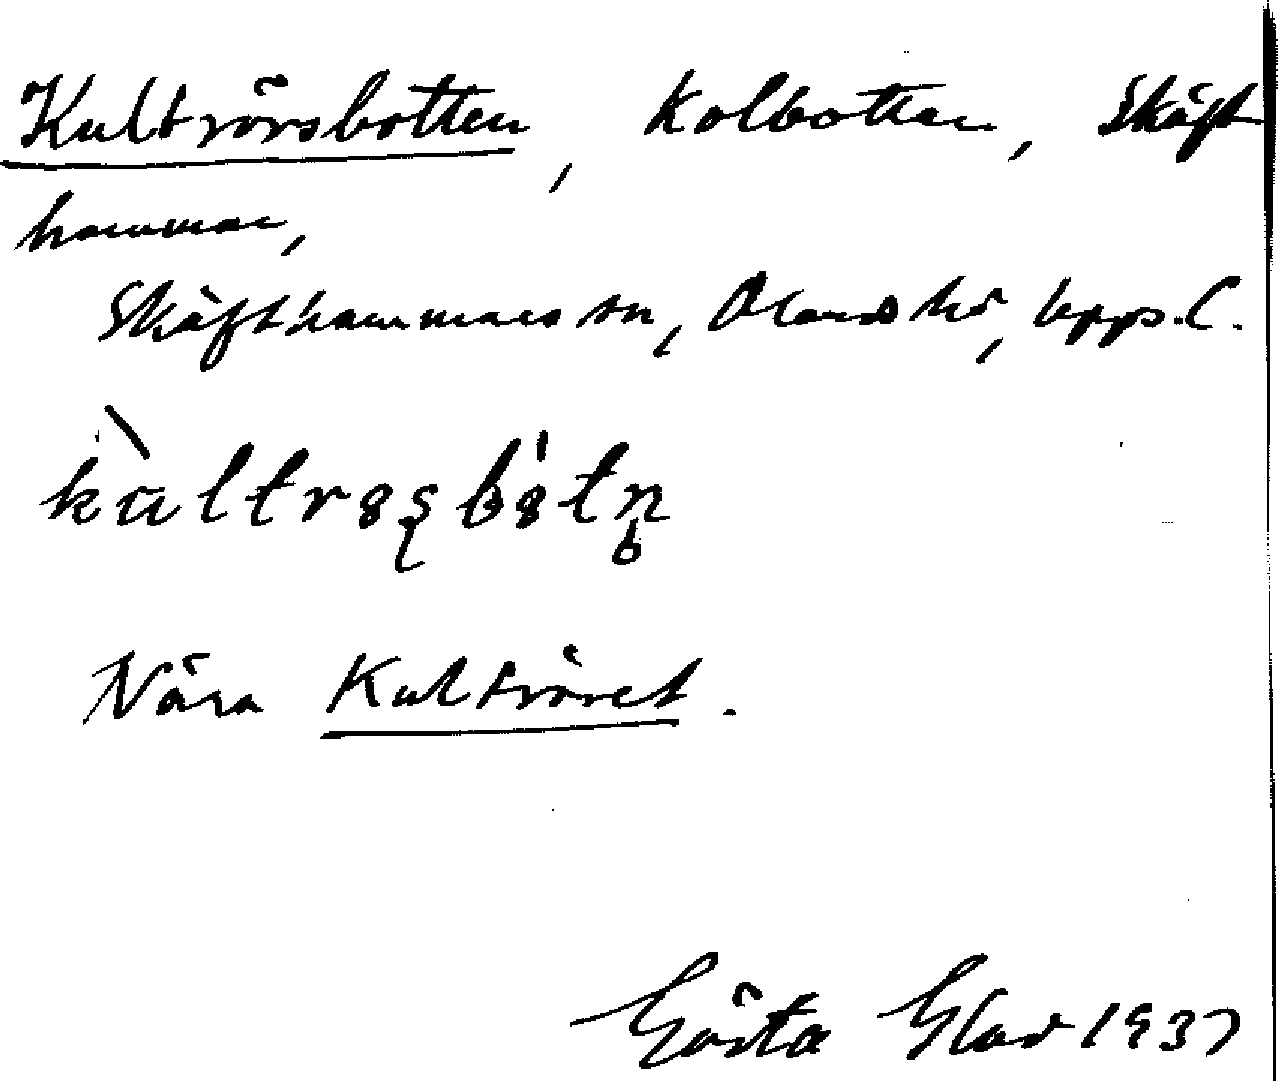 Kultrörsbotten, Kolbotten, Skäft
hammar,
Skäfthammars sn, Olands hd, Upps. l.
Nära Kultröret.
Gösta Glad 1937